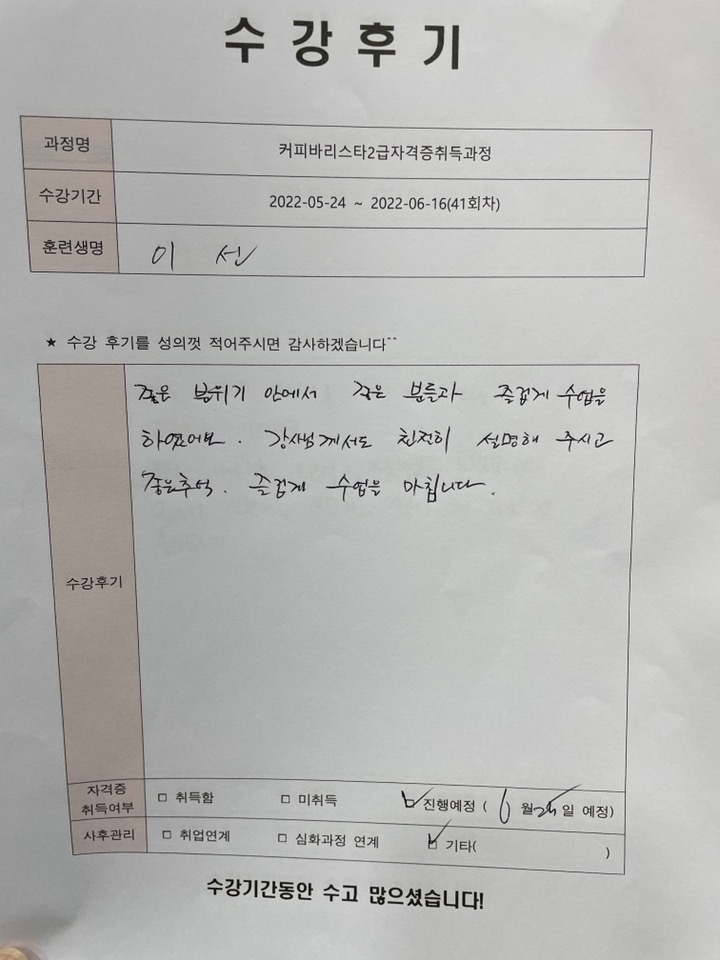 수강후기
과정명 커피바리스타2급자격증취득과정
수강기간 2022-05-24 ~ 2022-06-16(41회차)
훈련생명 이 선
★ 수강 후기를 성의껏 적어주시면 감사하겠습니다^^
좋은 분위기 안에서 좋은 분들과 즐겁게 수업을
하였어요. 강사님께서도 친절히 설명해 주시고
좋은추억. 즐겁게 수업을 마칩니다.
수강후기
자격증
취득여부 □ 취득함 □ 미취득 ☑ 진행예정 ( 6 월 25 일 예정)
사후관리 □ 취업연계 □ 심화과정 연계 ☑ 기타( )
수강기간동안 수고 많으셨습니다!